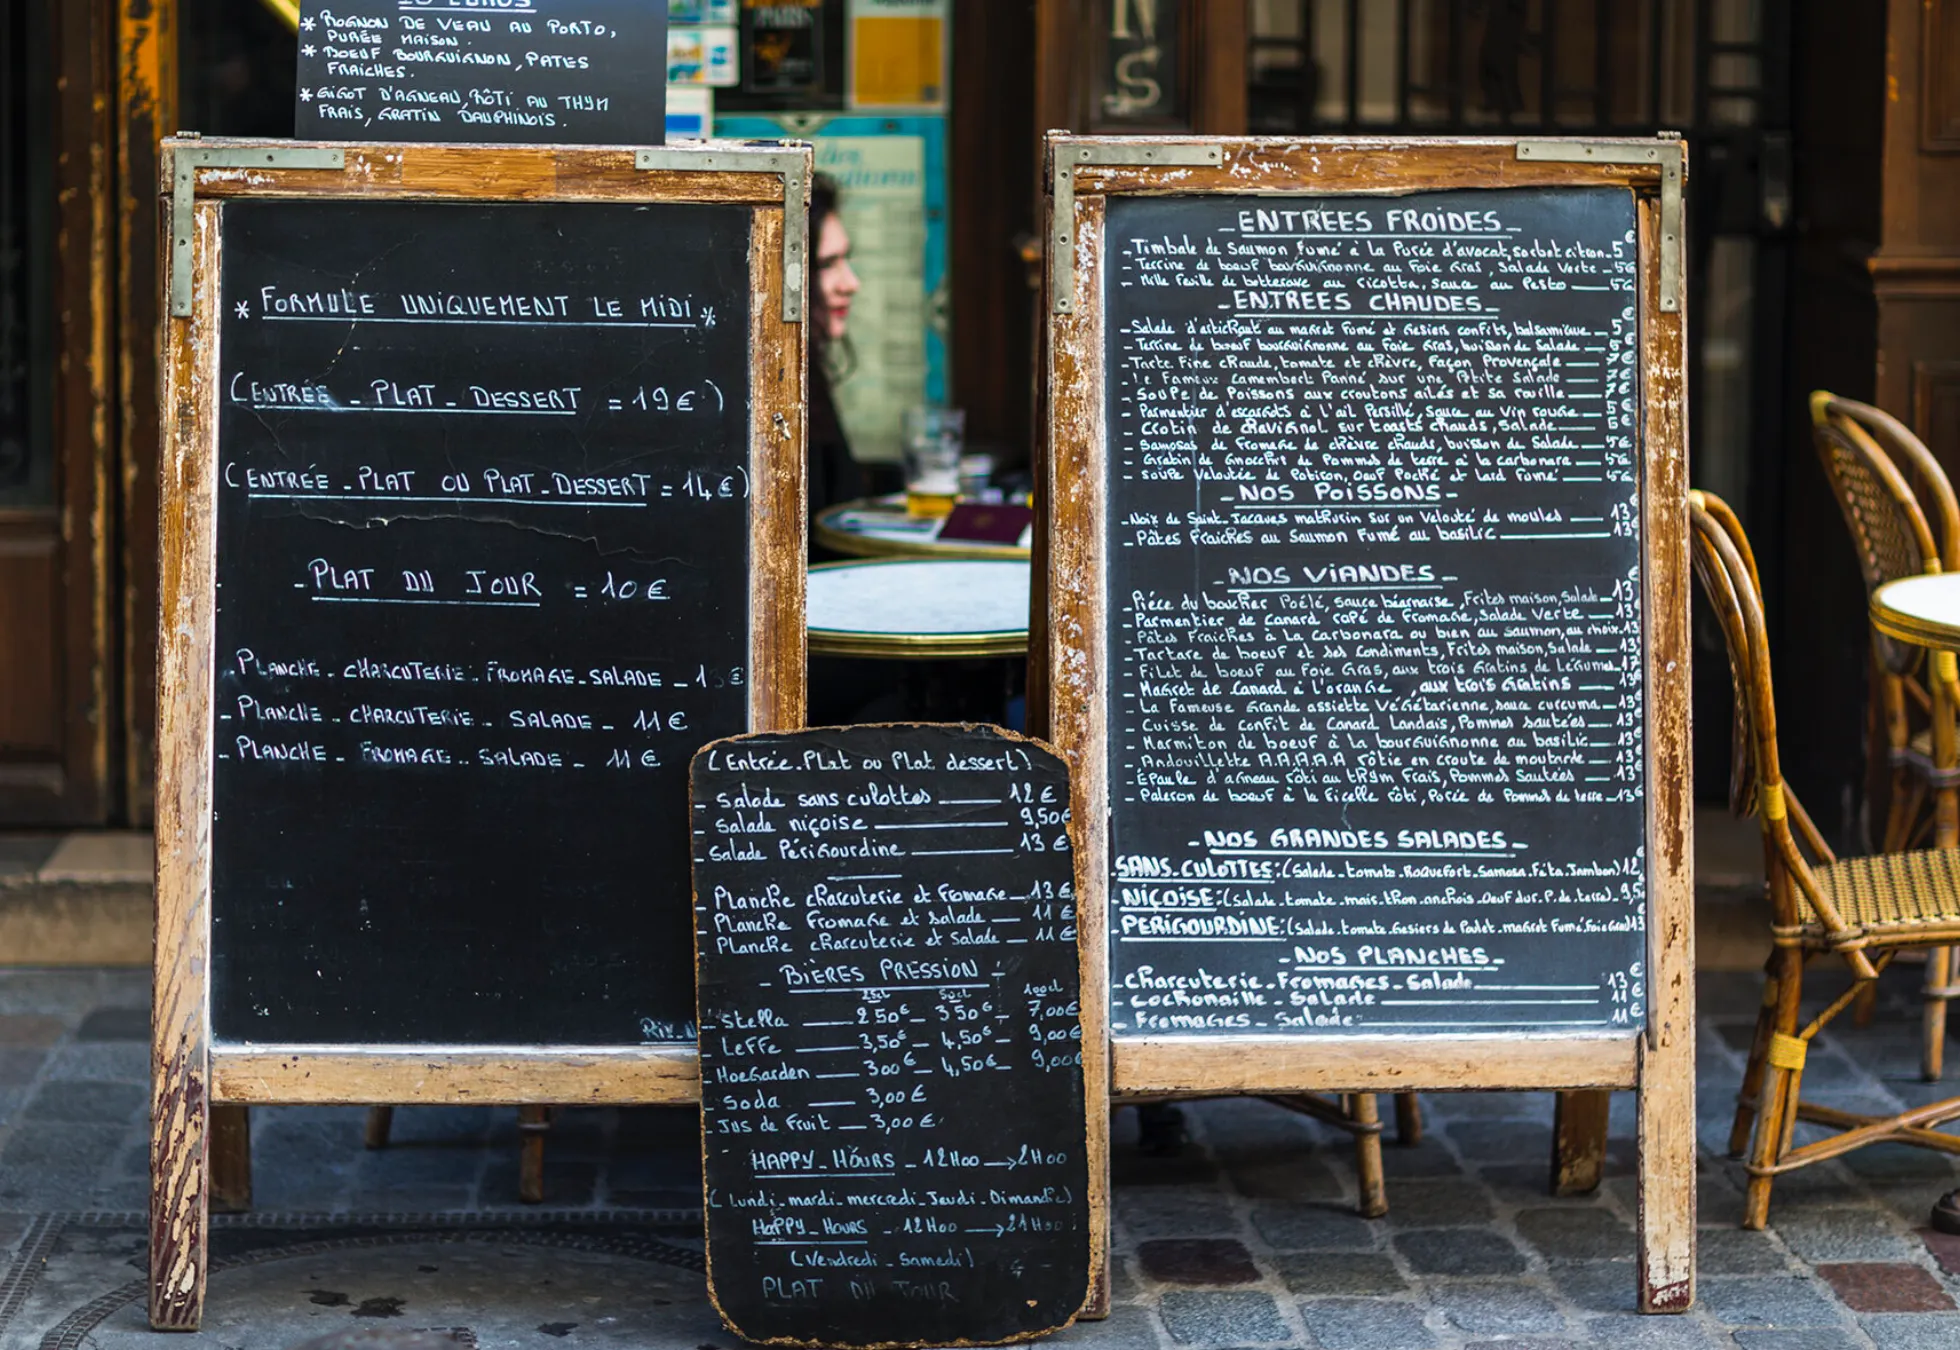 * ROGNON DE VEAU AU PORTO,
PURÉE MAISON.
* BOEUF BOURGUIGNON, PATES
FRAICHES.
* GIGOT D'AGNEAU, RÔTI AU THYM
FRAIS, GRATIN DAUPHINOIS.
* FORMULE UNIQUEMENT LE MIDI *
(ENTRÉE - PLAT - DESSERT = 19€)
(ENTRÉE - PLAT OU PLAT - DESSERT = 14€)
- PLAT DU JOUR = 10€
- PLANCHE - CHARCUTERIE - FROMAGE - SALADE - 1 €
- PLANCHE - CHARCUTERIE - SALADE - 11€
- PLANCHE - FROMAGE - SALADE - 11€
(Entrée - Plat ou Plat dessert)
- Salade sans culottes 12€
- Salade niçoise 9,50€
- Salade Périgourdine 13€
- Planche charcuterie et fromage 13€
- Planche fromage et salade 11€
- Planche charcuterie et salade 11€
BIÈRES PRESSION
25cl 50cl 100cl
- Stella 2.50€ - 3.50€ - 7,00€
- Leffe 3,50€ - 4,50€ - 9,00€
- Hoegarden 3.00€ - 4,50€ - 9,00€
- Soda 3,00€
- Jus de Fruit 3,00€
HAPPY - HOURS - 12H00 → 21H00
(Lundi - mardi - mercredi - Jeudi - Dimanche)
HAPPY - HOURS - 12H00 → 21H00
(Vendredi - Samedi)
PLAT DU JOUR
- ENTREES FROIDES -
- Timbale de Saumon Fumé à la Purée d'avocat, sorbet citron - 5€
- Terrine de boeuf bourguignonne au Foie Gras, Salade Verte - 5€
- Mille Feuille de betterave au ricotta, sauce au Pesto 5€
- ENTREES CHAUDES -
- Salade d'artichaut au magret Fumé et Gésiers confits, balsamique - 5€
- Terrine de boeuf bourguignonne au Foie Gras, buisson de Salade - 5€
- Tarte Fine chaude, tomate et chèvre, Façon Provençale 7€
- Le Fameux Camembert Panné, sur une Petite Salade 7€
- Soupe de Poissons aux croutons ailés et sa rouille 7€
- Parmentier d'escargots à l'ail Persillé, sauce au Vin rouge 5€
- Crotin de chavignol sur toasts chauds, Salade 6€
- Samosas de Fromage de chèvre chauds, buisson de Salade 5€
- Gratin de Gnocchi de Pommes de terre à la carbonara 5€
- Soupe Veloutée de Potiron, Oeuf Poché et Lard Fumé 5€
- NOS POISSONS -
- Noix de Saint-Jacques mathurin sur un Velouté de moules 13€
- Pâtes Fraiches au Saumon Fumé au basilic 13€
- NOS VIANDES -
- Pièce du boucher Poêlé, sauce béarnaise, Frites maison, Salade 13€
- Parmentier de Canard rapé de Fromage, Salade Verte 13€
- Pâtes Fraiches à La Carbonara ou bien au saumon, au choix - 13
- Tartare de boeuf et ses Condiments, Frites maison, Salade 13€
- Filet de boeuf au Foie Gras, aux trois Gratins de Légumes - 17
- Magret de Canard à l'orange, aux trois Gratins 13€
- La Fameuse Grande assiette Végétarienne, sauce curcuma - 13€
- Cuisse de Confit de Canard Landais, Pommes sautées 13€
- Marmiton de boeuf à la bourguignonne au basilic 13€
- Andouillette A.A.A.A.A rôtie en croute de moutarde 13€
- Épaule d'agneau rôti au thym Frais, Pommes Sautées 13€
- Paleron de boeuf à la Ficelle rôti, Purée de Pommes de terre - 13€
- NOS GRANDES SALADES -
SANS-CULOTTES: (Salade - tomate - Roquefort - Samosa - Féta - Jambon) 12€
- NIÇOISE: (Salade - tomate - mais - thon - anchois - Oeuf dur - P. de terre) - 9,5
- PERIGOURDINE: (Salade - tomate - Gesiers de Poulet - magret Fumé, Foie Gras) 13
- NOS PLANCHES -
- Charcuterie - Fromages - Salade 13€
- Cochonaille - Salade 11€
- Fromages - Salade 11€